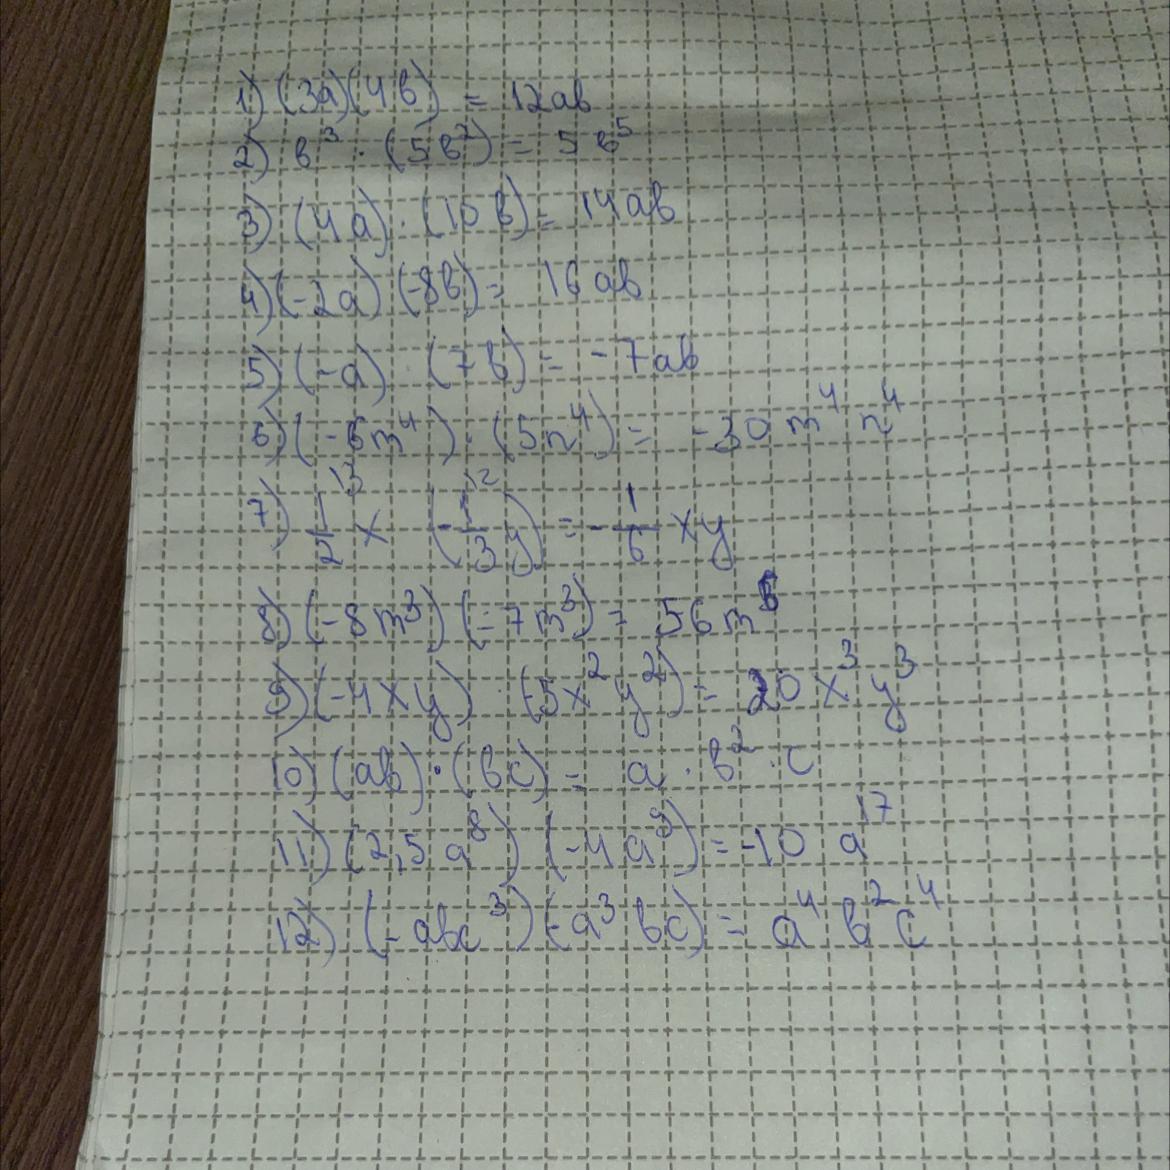 1) (3a)(4b) = 12ab
2) b³ · (5b²) = 5b⁵
3) (4a) · (10b) = 14ab
4) (-2a) (-8b) = 16ab
5) (-a) · (7b) = -7ab
6) (-6m⁴) · (5n⁴) = -30m⁴n⁴
7) 1/2 x¹³ (-1/3 y¹²) = -1/6 xy
8) (-8m³) (-7m³) = 56m⁶
9) (-4xy) · (-5x²y²) = 20x³y³
10) (ab) · (bc) = a · b² · c
11) (2,5a⁸) (-4a⁹) = -10a¹⁷
12) (-abc³) (-a³bc) = a⁴b²c⁴